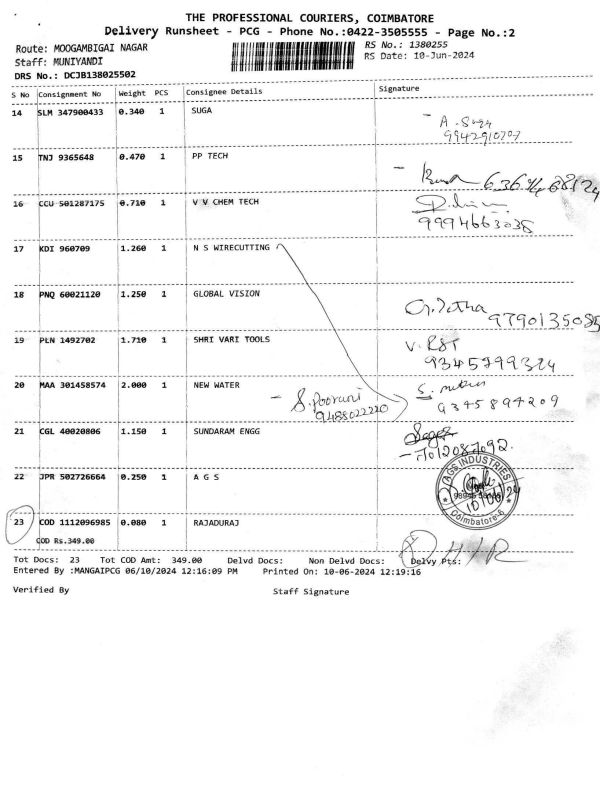 THE PROFESSIONAL COURIERS, COIMBATORE
Delivery Runsheet - PCG - Phone No.:0422-3505555 - Page No.:2
Route: MOOGAMBIGAI NAGAR
RS No.: 1380255
Staff: MUNIYANDI
RS Date: 10-Jun-2024
DRS No.: DCJB138025502
S No Consignment No Weight PCS Consignee Details Signature
14 SLM 347900433 0.340 1 SUGA A. Suga
9942910707
15 TNJ 9365648 0.470 1 PP TECH
16 CCU 501287175 0.710 1 V V CHEM TECH
9994663038
17 KDI 960709 1.260 1 N S WIRECUTTING
18 PNQ 60021120 1.250 1 GLOBAL VISION
9790135085
19 PLN 1492702 1.710 1 SHRI VARI TOOLS V. RST
9345799324
20 MAA 301458574 2.000 1 NEW WATER S. Poorani
9488022220
9345894209
21 CGL 40020806 1.150 1 SUNDARAM ENGG
7012087092
22 JPR 502726664 0.250 1 A G S
AGS INDUSTRIES
10/06/24
Coimbatore-6
23 COD 1112096985 0.080 1 RAJADURAJ
COD Rs.349.00
D H I R
Tot Docs: 23 Tot COD Amt: 349.00 Delvd Docs: Non Delvd Docs: Delvy Pts:
Entered By :MANGAIPCG 06/10/2024 12:16:09 PM Printed On: 10-06-2024 12:19:16
Verified By Staff Signature